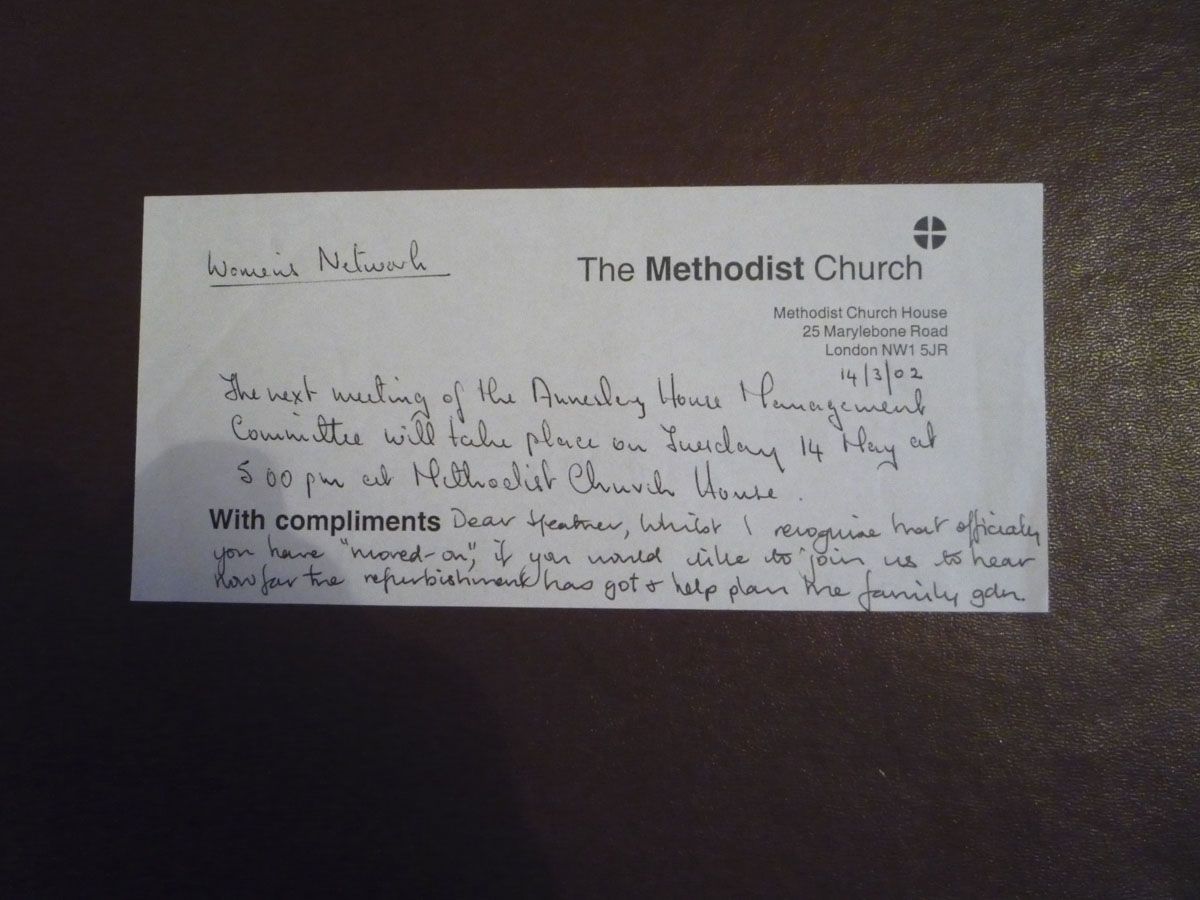 Women's Network
The Methodist Church
Methodist Church House
25 Marylebone Road
London NW1 5JR
14/3/02
The next meeting of the Annesley House Management
Committee will take place on Tuesday 14 May at
5 00 pm at Methodist Church House.
With compliments Dear Heather, Whilst I recognise that officially
you have "moved-on", if you would like to join us to hear
how far the refurbishment has got & help plan the family gdn.